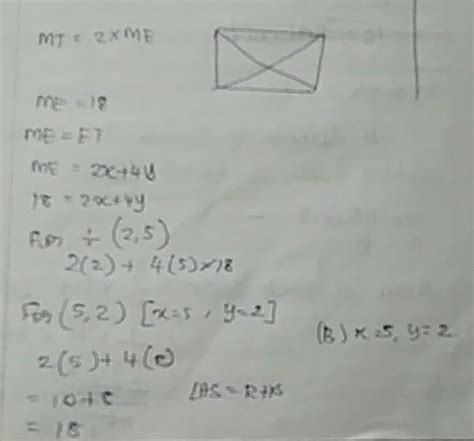 MT = 2 × ME
ME = 18
ME = ET
ME = 2x+4y
18 = 2x+4y
For ÷ (2,5)
2(2) + 4(5) × 18
For (5, 2) [x=5, y=2]
(B) x=5, y=2
2(5) + 4(2)
= 10+8
LHS = RHS
= 18